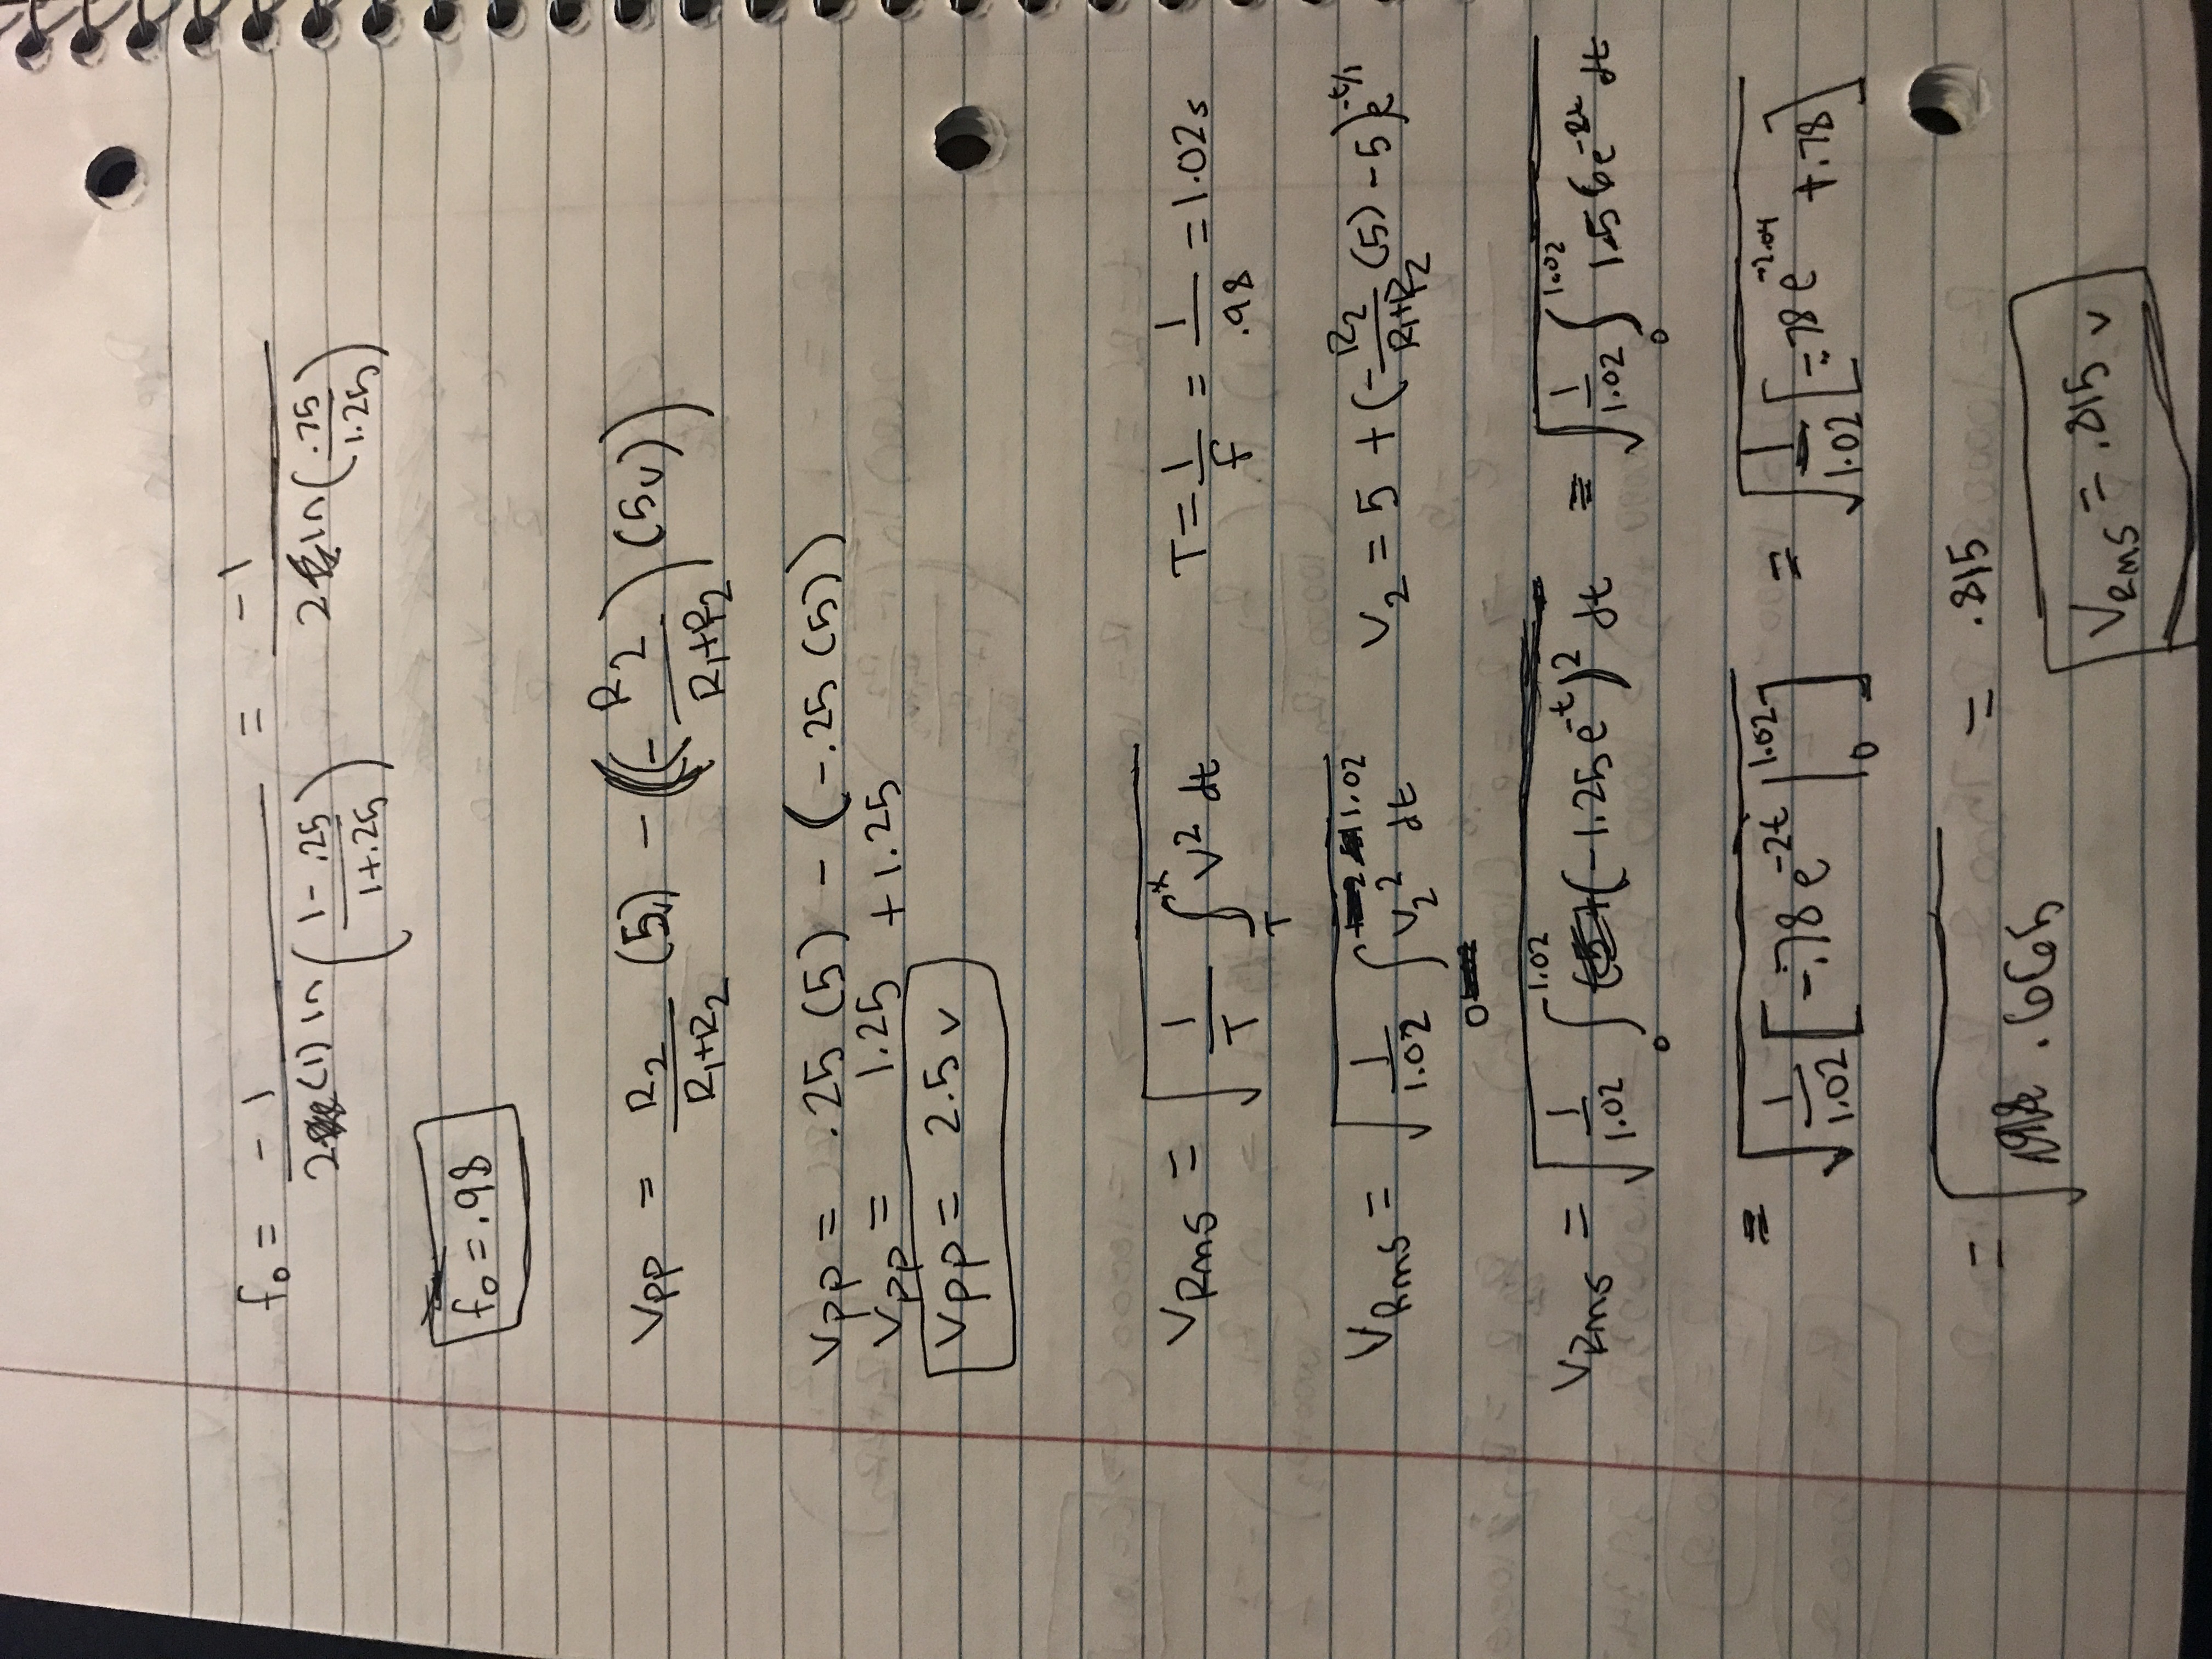 f₀ = -1 / (2 (1) ln((1-.25)/(1+.25))) = -1 / (2 ln(.75/1.25))
f₀ = .98
Vpp = R₂/(R₁+R₂) (5v) - ((-R₂/(R₁+R₂)) (5v))
Vpp = .25 (5) - (-.25 (5))
Vpp = 1.25 + 1.25
Vpp = 2.5 v
VRms = √(1/T ∫_T^x V² dt) T = 1/f = 1/.98 = 1.02s
VRms = √(1/1.02 ∫_0^1.02 V₂² dt) V₂ = 5 + (-R₂/(R₁+R₂) (5) - 5)e^(-t/1)
VRms = √(1/1.02 ∫_0^1.02 (-1.25e^-t)² dt) = √(1/1.02 ∫_0^1.02 1.56e^-2t dt)
= √(1/1.02 [-.78e^-2t |_0^1.02]) = √(1/1.02 [-.78e^-2.04 + .78])
= √.665 = .815
VRms = .815 v